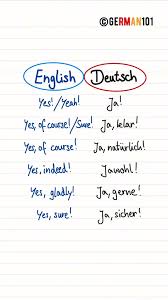 ©GERMAN101
English Deutsch
Yes!/Yeah! Ja!
Yes, of course!/Sure! Ja, klar!
Yes, of course! Ja, natürlich!
Yes, indeed! Jawohl!
Yes, gladly! Ja, gerne!
Yes, sure! Ja, sicher!